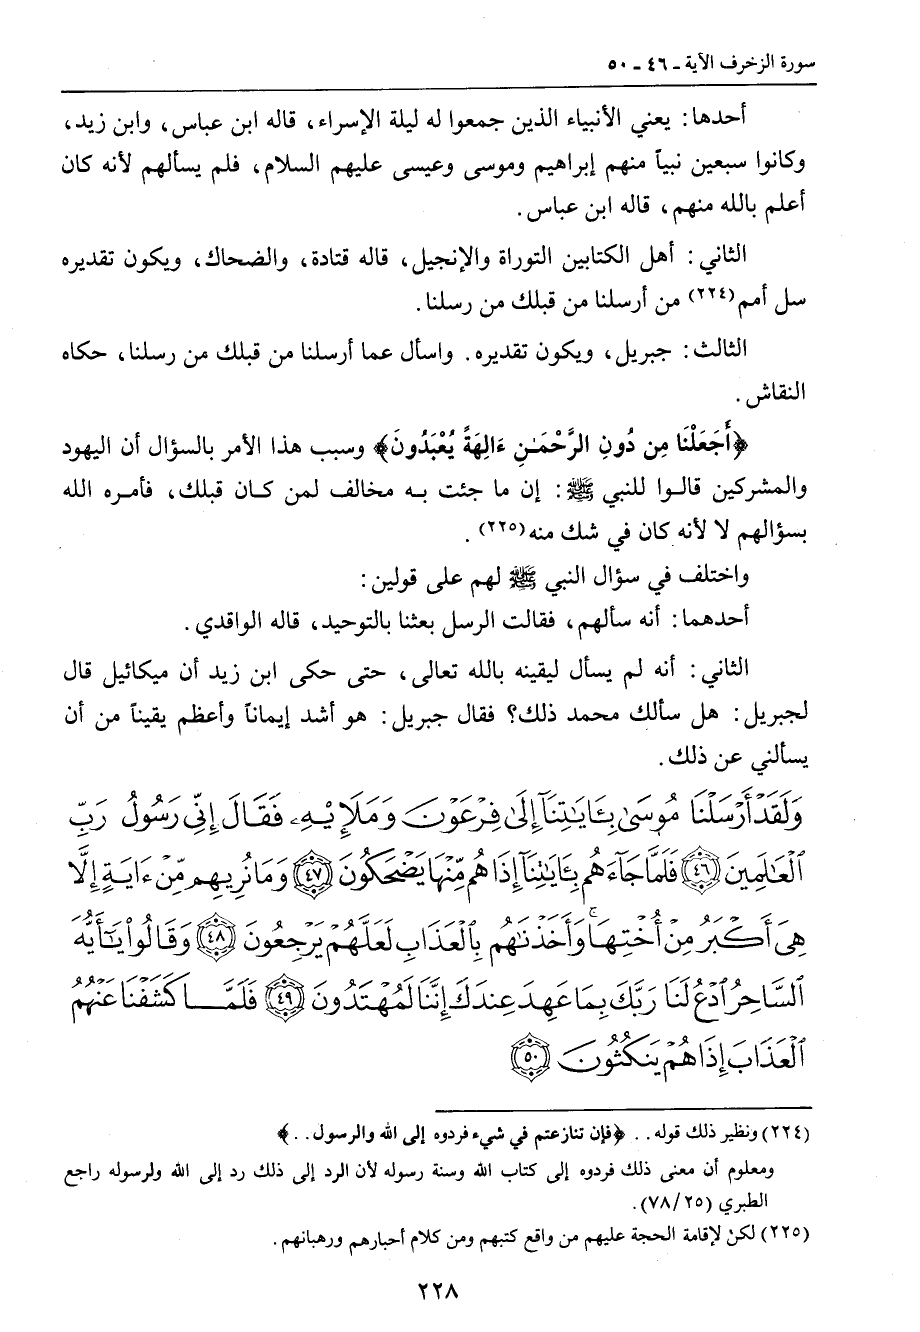 سورة الزخرف الآية ـ ٤٦ ـ ٥٠
أحدها: يعني الأنبياء الذين جمعوا له ليلة الإسراء، قاله ابن عباس، وابن زيد،
وكانوا سبعين نبياً منهم إبراهيم وموسى وعيسى عليهم السلام، فلم يسألهم لأنه كان
أعلم بالله منهم، قاله ابن عباس.
الثاني: أهل الكتابين التوراة والإنجيل، قاله قتادة، والضحاك، ويكون تقديره
سل أمم(٢٢٤) من أرسلنا من قبلك من رسلنا.
الثالث: جبريل، ويكون تقديره. واسأل عما أرسلنا من قبلك من رسلنا، حكاه
النقاش.
﴿أَجَعَلْنَا مِن دُونِ الرَّحْمَـٰنِ ءَالِهَةً يُعْبَدُونَ﴾ وسبب هذا الأمر بالسؤال أن اليهود
والمشركين قالـوا للنبي ﷺ: إن ما جئت بـه مخالف لمن كـان قبلك، فأمـره الله
بسؤالهم لا لأنه كان في شك منه(٢٢٥).
واختلف في سؤال النبي ﷺ لهم على قولين:
أحدهما: أنه سألهم، فقالت الرسل بعثنا بالتوحيد، قاله الواقدي.
الثاني: أنه لم يسأل ليقينه بالله تعالى، حتى حكى ابن زيد أن ميكائيل قال
لجبريل: هل سألك محمد ذلك؟ فقال جبريل: هو أشد إيماناً وأعظم يقيناً من أن
يسألني عن ذلك.
وَلَقَدْ أَرْسَلْنَا مُوسَىٰ بِـَٔايَـٰتِنَآ إِلَىٰ فِرْعَوْنَ وَمَلَإِي۟هِۦ فَقَالَ إِنِّى رَسُولُ رَبِّ
ٱلْعَـٰلَمِينَ ﴿٤٦﴾ فَلَمَّا جَآءَهُم بِـَٔايَـٰتِنَآ إِذَا هُم مِّنْهَا يَضْحَكُونَ ﴿٤٧﴾ وَمَا نُرِيهِم مِّنْ ءَايَةٍ إِلَّا
هِىَ أَكْبَرُ مِنْ أُخْتِهَا ۖ وَأَخَذْنَـٰهُم بِٱلْعَذَابِ لَعَلَّهُمْ يَرْجِعُونَ ﴿٤٨﴾ وَقَالُوا۟ يَـٰٓأَيُّهَ
ٱلسَّاحِرُ ٱدْعُ لَنَا رَبَّكَ بِمَا عَهِدَ عِندَكَ إِنَّنَا لَمُهْتَدُونَ ﴿٤٩﴾ فَلَمَّا كَشَفْنَا عَنْهُمُ
ٱلْعَذَابَ إِذَا هُمْ يَنكُثُونَ ﴿٥٠﴾
(٢٢٤) ونظير ذلك قوله.. ﴿فإن تنازعتم في شيء فردوه إلى الله والرسول..﴾
ومعلوم أن معنى ذلك فردوه إلى كتاب الله وسنة رسوله لأن الرد إلى ذلك رد إلى الله ولرسوله راجع
الطبري (٧٨/٢٥).
(٢٢٥) لكنْ لإقامة الحجة عليهم من واقع كتبهم ومن كلام أحبارهم ورهبانهم.
٢٢٨